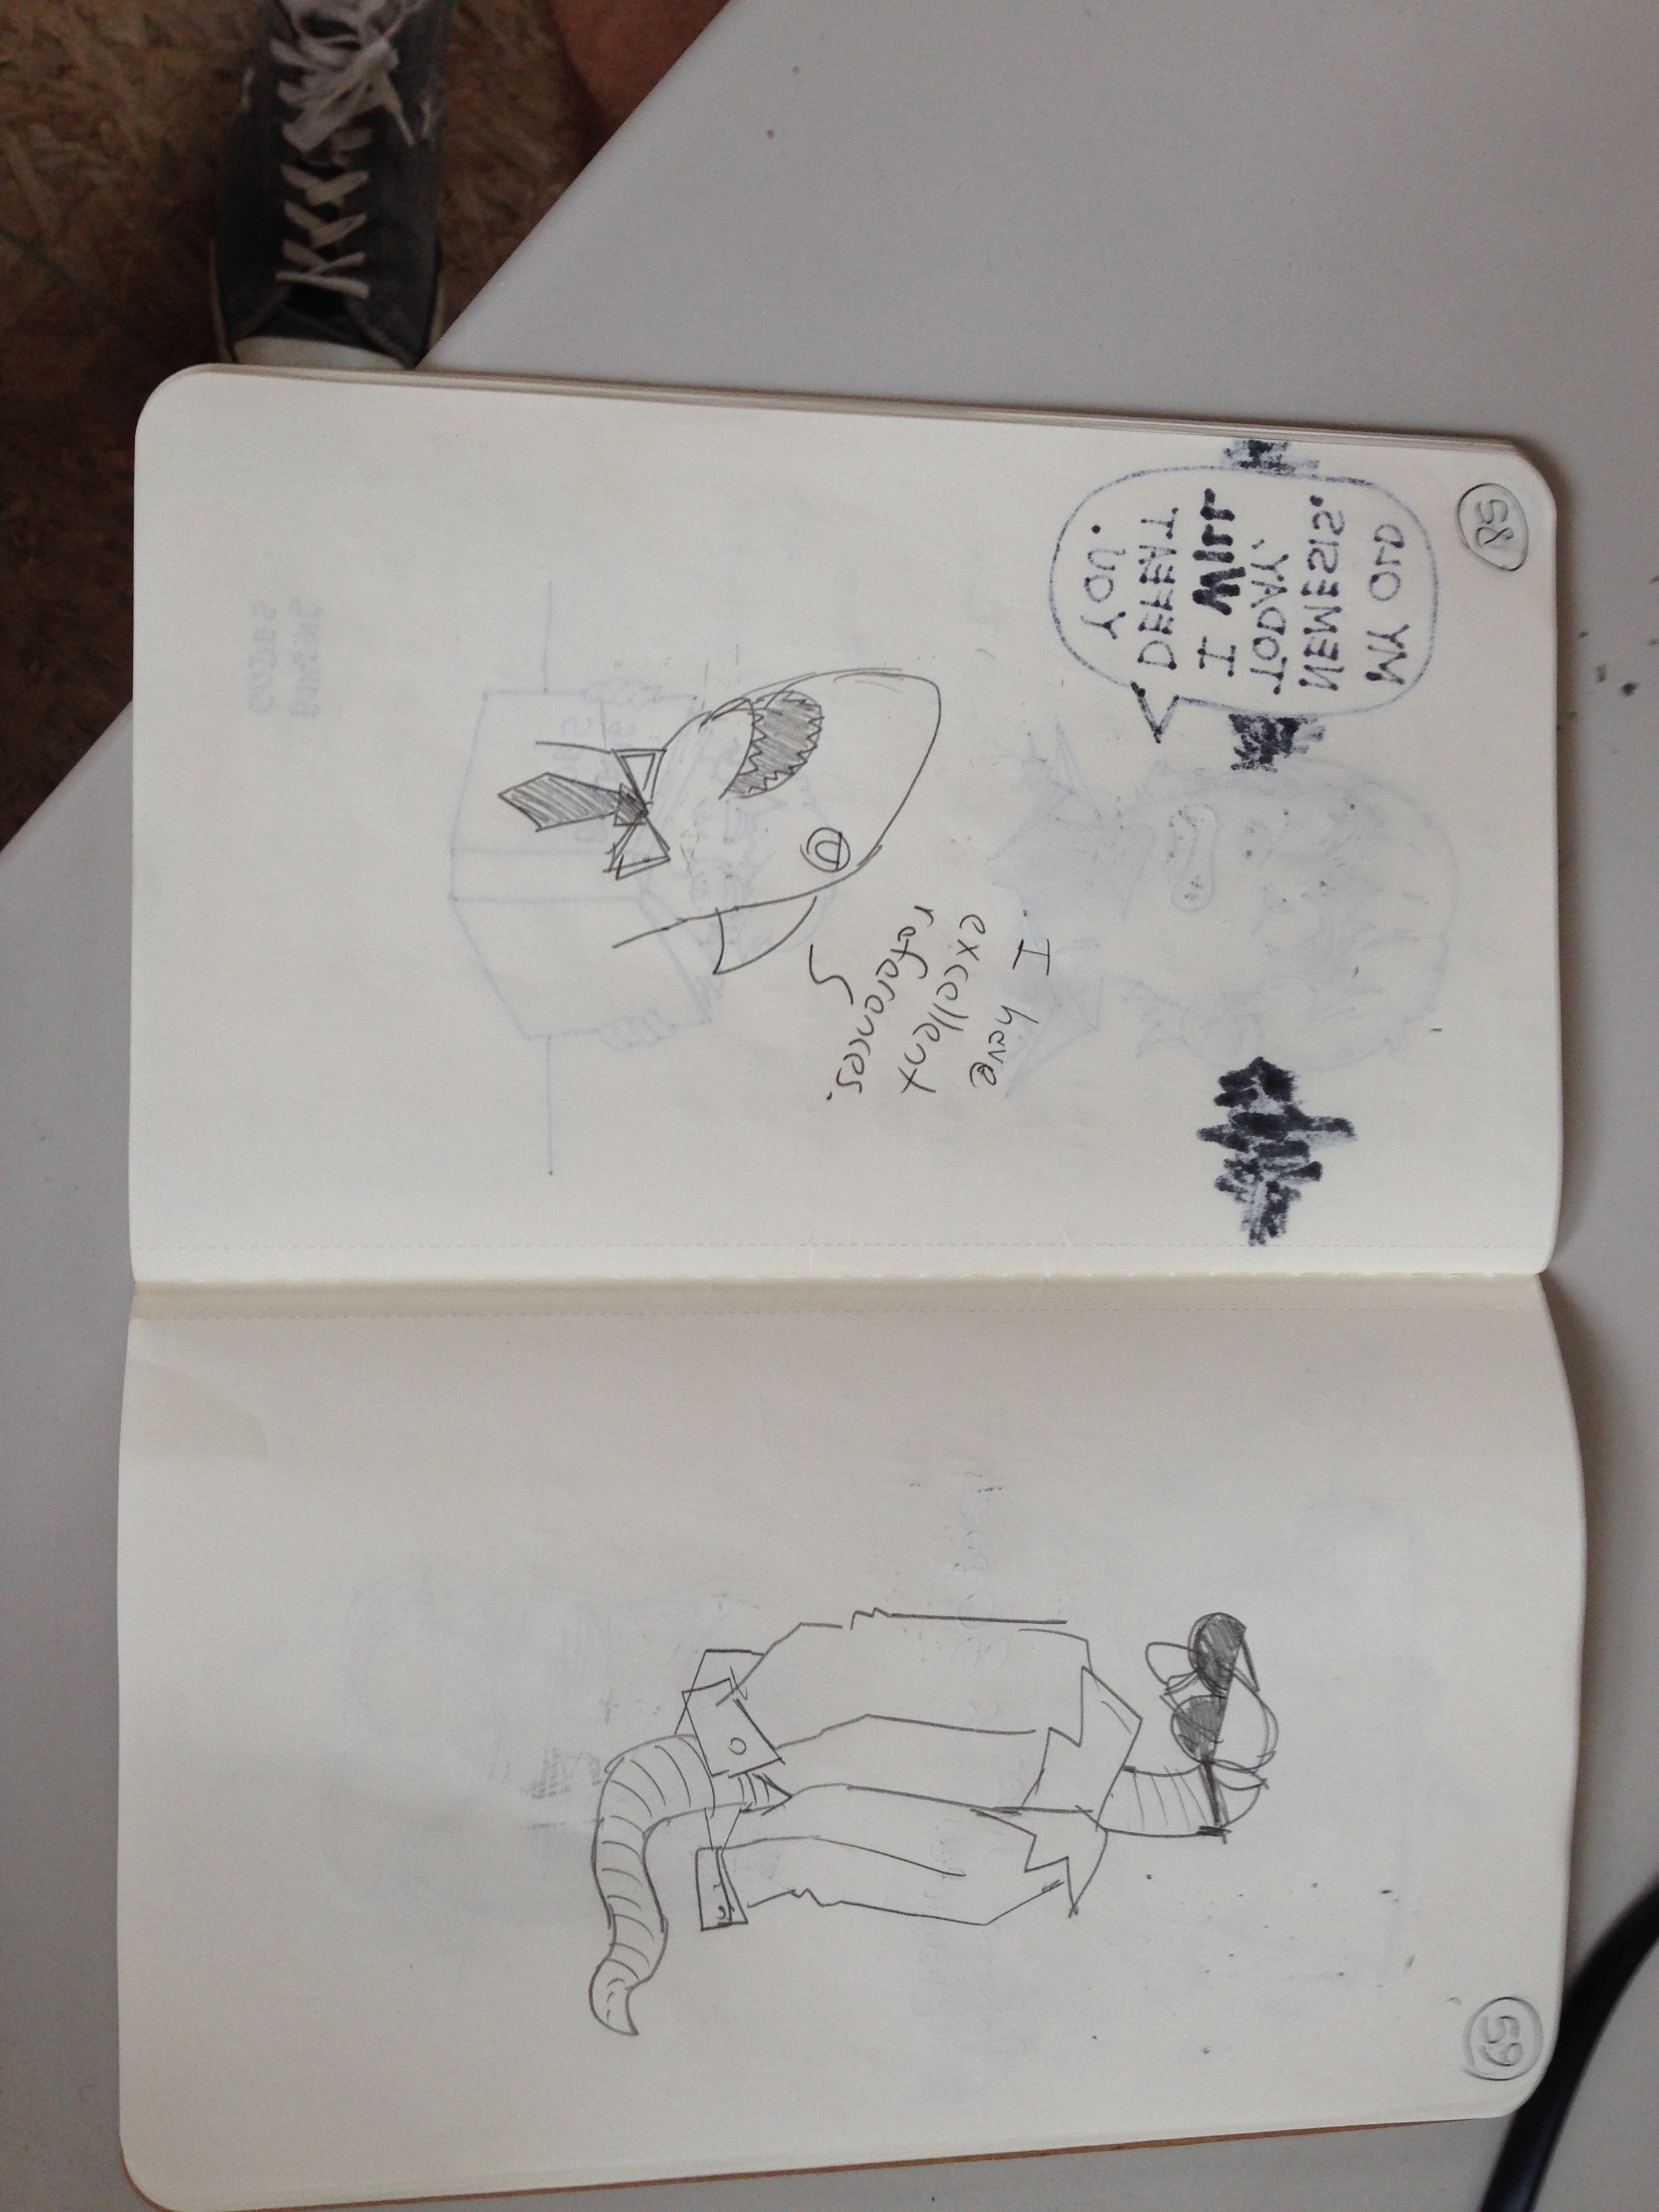 58
MY OLD
NEMESIS.
TODAY,
I WILL
DEFEAT
YOU.
I have
excellent
references.
59